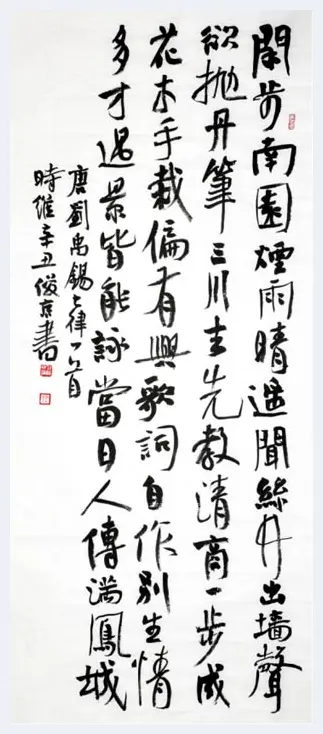 閑步南園煙雨晴遥聞絲竹出墙聲
欲抛丹筆三川去先教清商一步成
花木手栽偏有興歌詞自作别生情
多才遇景皆能詠當日人傳满鳳城
唐劉禹錫七律一首
時維辛丑俊京書